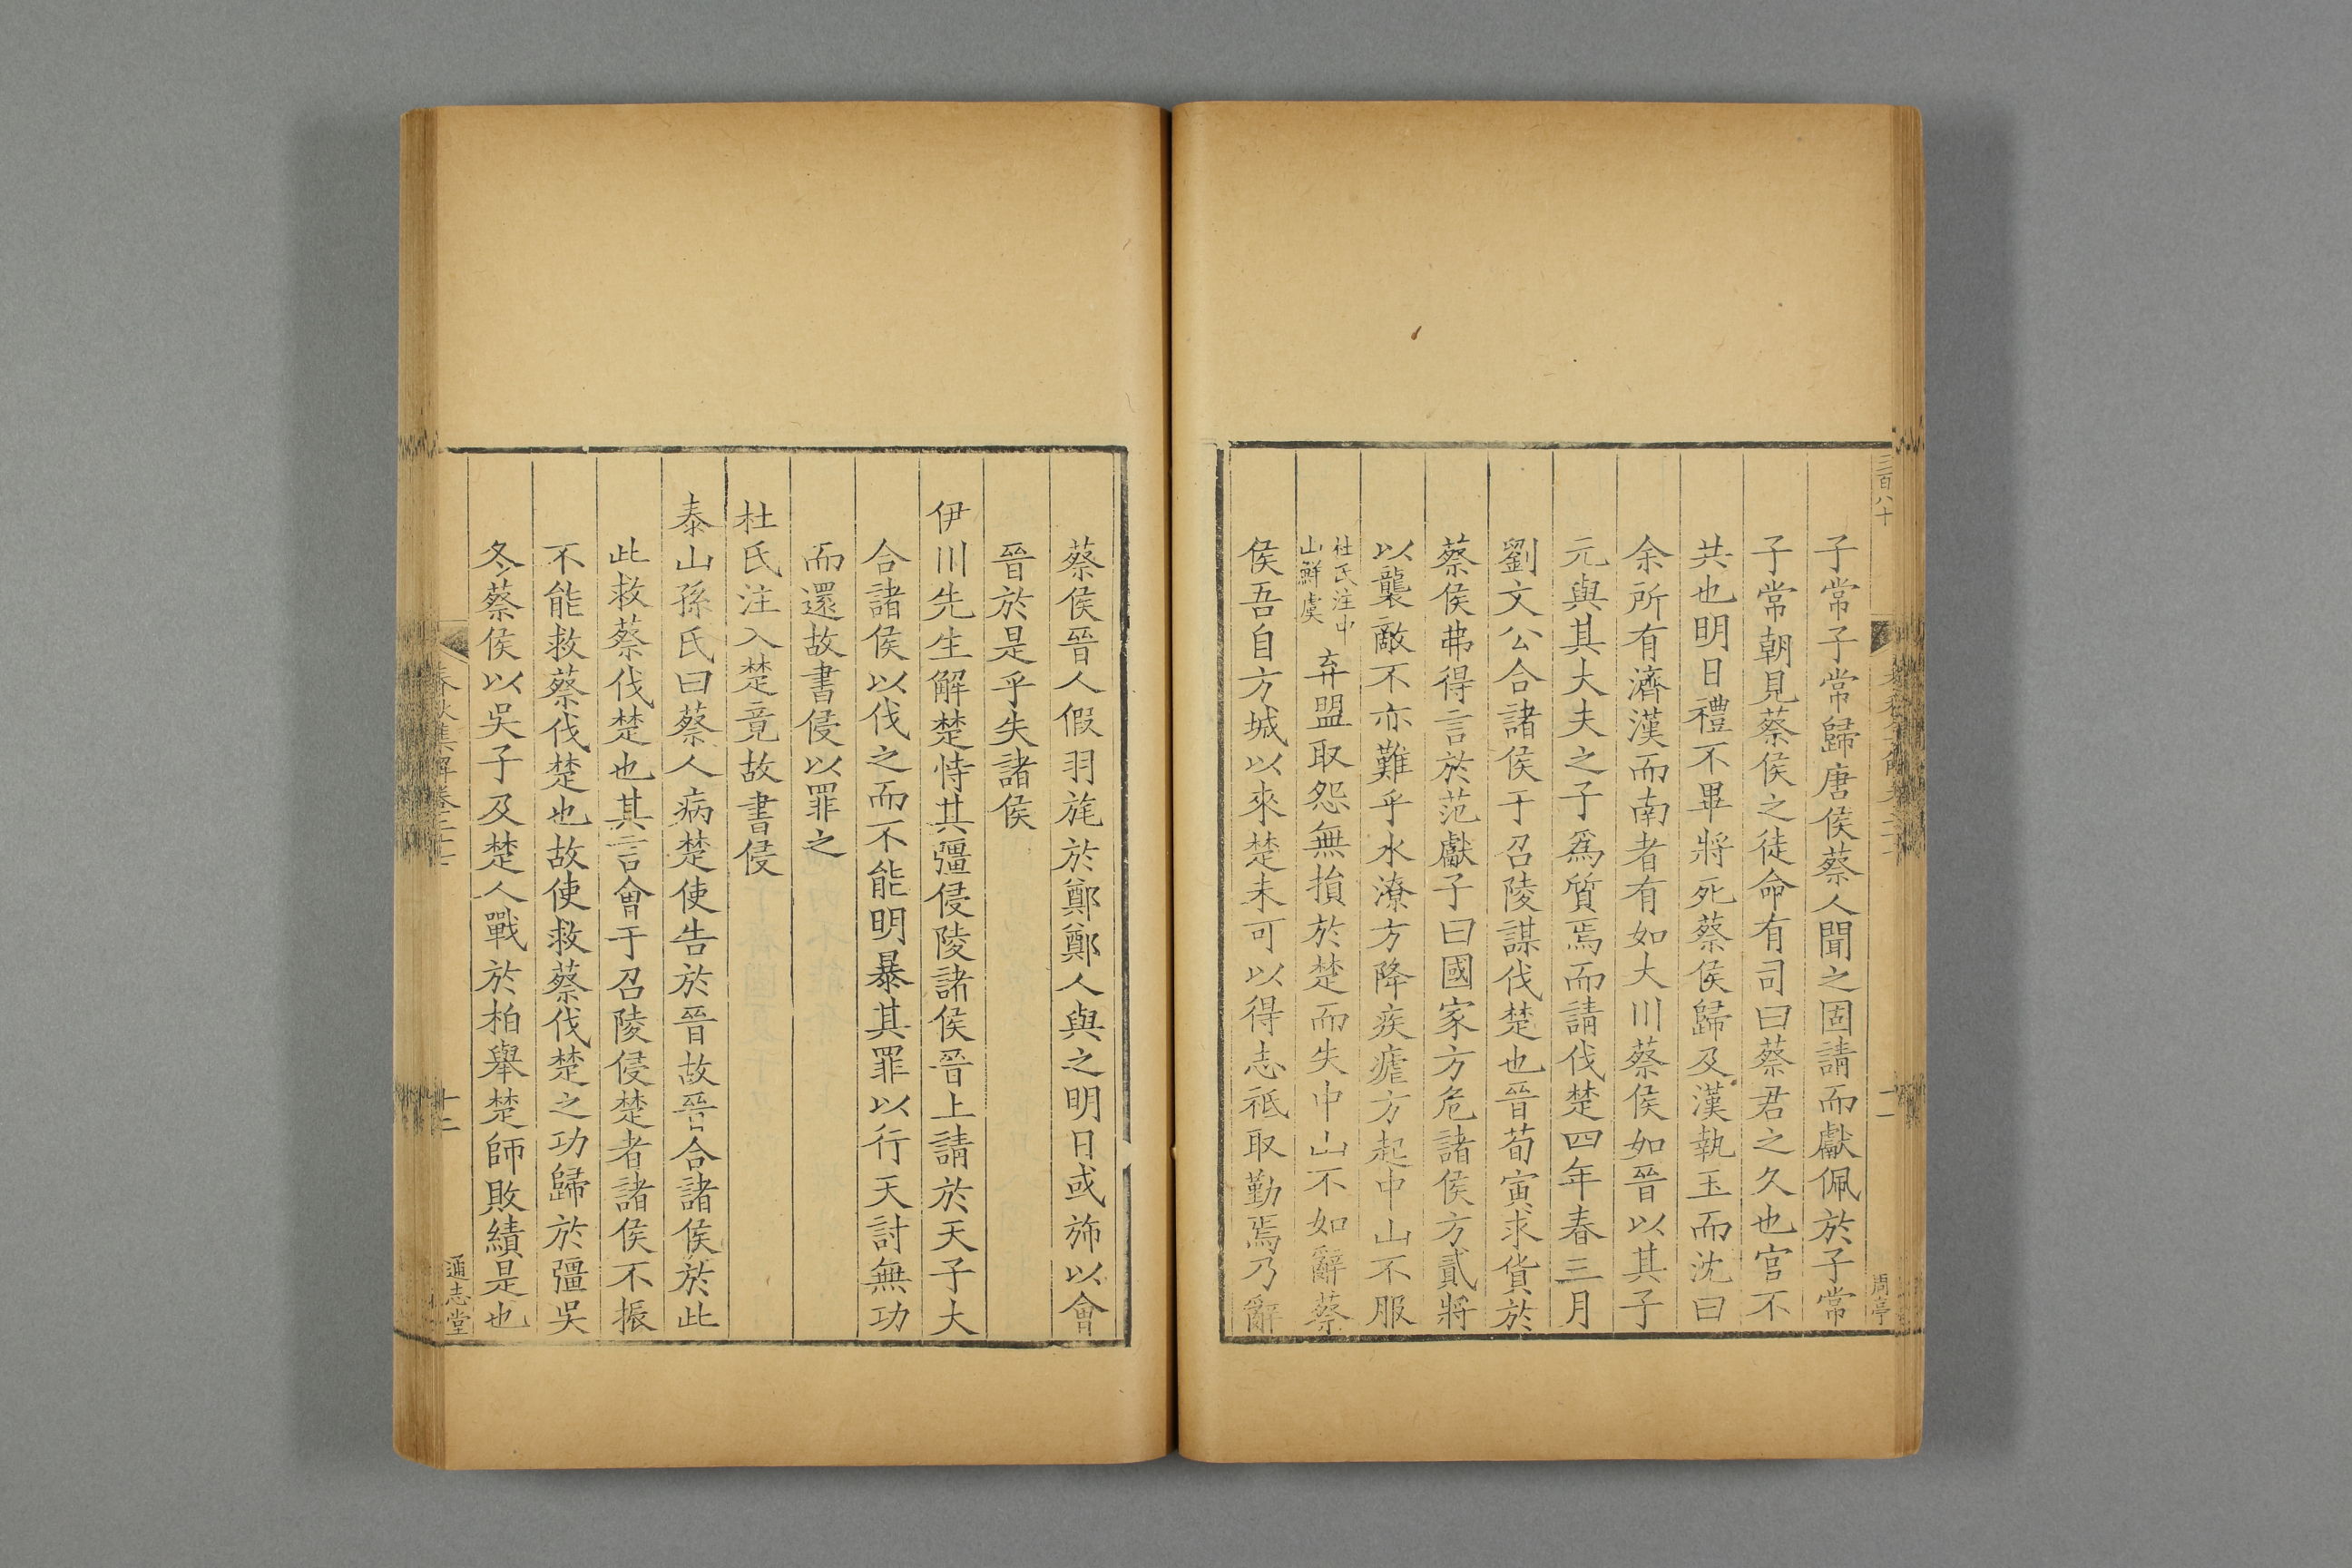 三百八十
子常子常歸唐侯蔡人聞之固請而獻佩於子常
子常朝見蔡侯之徒命有司曰蔡君之久也官不
共也明日禮不畢將死蔡侯歸及漢執玉而沈曰
余所有濟漢而南者有如大川蔡侯如晉以其子
元與其大夫之子爲質焉而請伐楚四年春三月
劉文公合諸侯于召陵謀伐楚也晉荀寅求貨於
蔡侯弗得言於范獻子曰國家方危諸侯方貳將
以襲敵不亦難乎水潦方降疾瘧方起中山不服
杜氏注中
山鮮虞
弃盟取怨無損於楚而失中山不如辭蔡
侯吾自方城以來楚未可以得志祗取勤焉乃辭
十一
周亭
蔡侯晉人假羽旄於鄭鄭人與之明日或旆以會
晉於是乎失諸侯
伊川先生解楚恃其彊侵陵諸侯晉上請於天子大
合諸侯以伐之而不能明暴其罪以行天討無功
而還故書侵以罪之
杜氏注入楚竟故書侵
泰山孫氏曰蔡人病楚使告於晉故晉合諸侯於此
此救蔡伐楚也其言會于召陵侵楚者諸侯不振
不能救蔡伐楚也故使救蔡伐楚之功歸於彊吳
冬蔡侯以吳子及楚人戰於柏舉楚師敗績是也
春秋集解卷
十二
通志堂